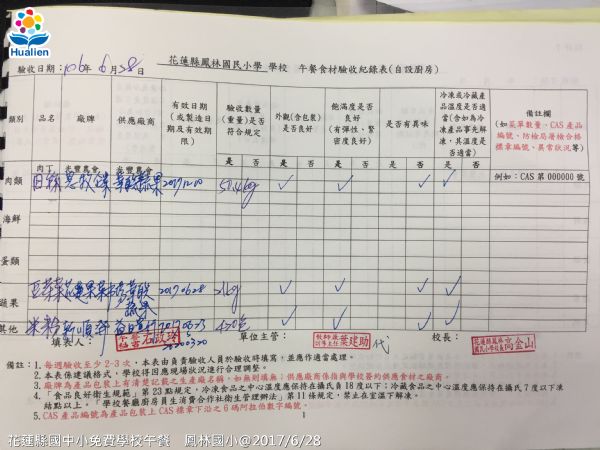 Hualien
花蓮縣鳳林國民小學 學校 午餐食材驗收紀錄表(自設廚房)
驗收日期：106年6月28日
類別
品名
廠牌
供應廠商
有效日期
(或製造日
期及有效期
限)
驗收數量
(重量)是否
符合規定
外觀(含包裝)
是否良好
飽滿度是否
良好
(有彈性、緊
密度良好)
是否有異味
冷凍或冷藏產
品溫度是否適
當(含如為冷
凍產品事先解
凍，其溫度是
否適當)
備註欄
(如菜單數量、CAS 產品
編號、防檢局署檢合格
標章編號、異常狀況等)
是 否 是 否 是 否 是 否 是 否
肉丁 光豐農會 光豐農會
例如：CAS 第 000000 號
肉類
海鮮
蛋類
豆芽菜 2017.06.28 21kg
蔬果
其他 米粉
填表人：
單位主管：
葉建助 代
校長：
高金山
備註：1. 每週驗收至少 2-3 次，本表由負責驗收人員於驗收時填寫，並應作適當處理。
2. 本表係建議格式，學校得因應現場狀況進行合理調整。
3. 廠牌為產品包裝上有清楚記載之生產廠名稱，如無則填無；供應廠商係指與學校簽約供應食材之廠商。
4. 「食品良好衛生規範」第 23 點規定，冷凍食品之中心溫度應保持在攝氏負 18 度以下；冷藏食品之中心溫度應保持在攝氏 7 度以下凍
結點以上。「學校餐廳廚房員生消費合作社衛生管理辦法」第 11 條規定，禁止在室溫下解凍。
5. CAS 產品編號為產品包裝上 CAS 標章下沿之 6 碼阿拉伯數字編號。
1
花蓮縣國中小免費學校午餐 鳳林國小@2017/6/28